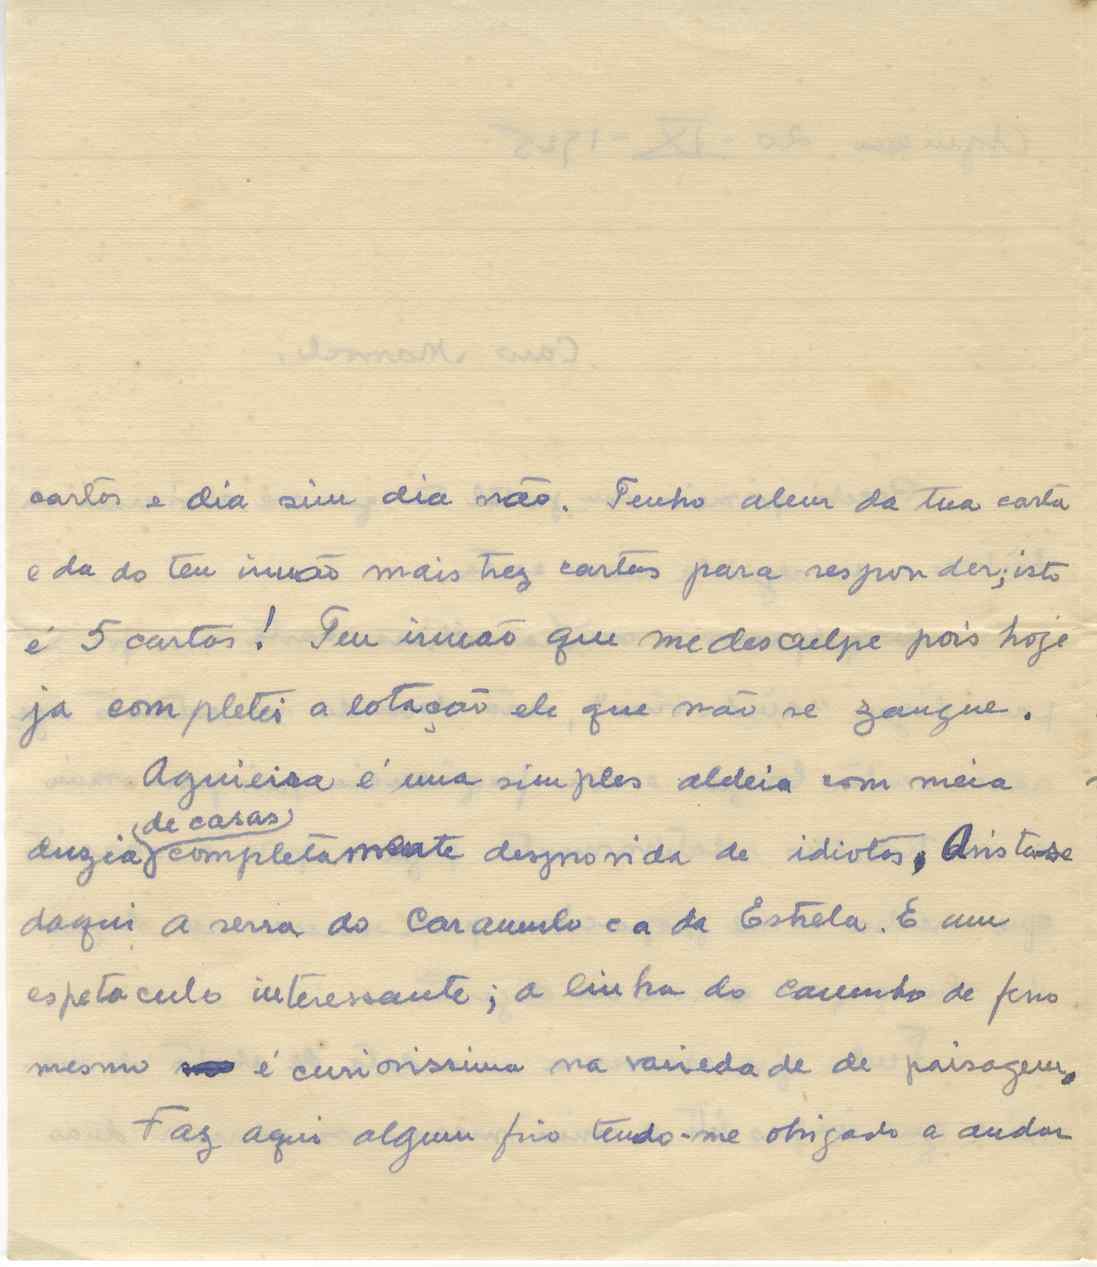 cartas e dia sim dia não. Tenho alem da tua carta
e da do teu irmão mais trez cartas para responder; isto
é 5 cartas! Teu irmão que me desculpe pois hoje
ja completei a lotação ele que não se zangue.
Aguieira é uma simples aldeia com meia
de casas
duzia completamente desprovida de idiotas, Avista-se
daqui a serra do Caramulo e a da Estrela. É um
espetaculo interessante; a linha do caminho de ferro
mesmo é curiosissima na variedade de paisagem.
Faz aqui algum frio tendo-me obrigado a andar